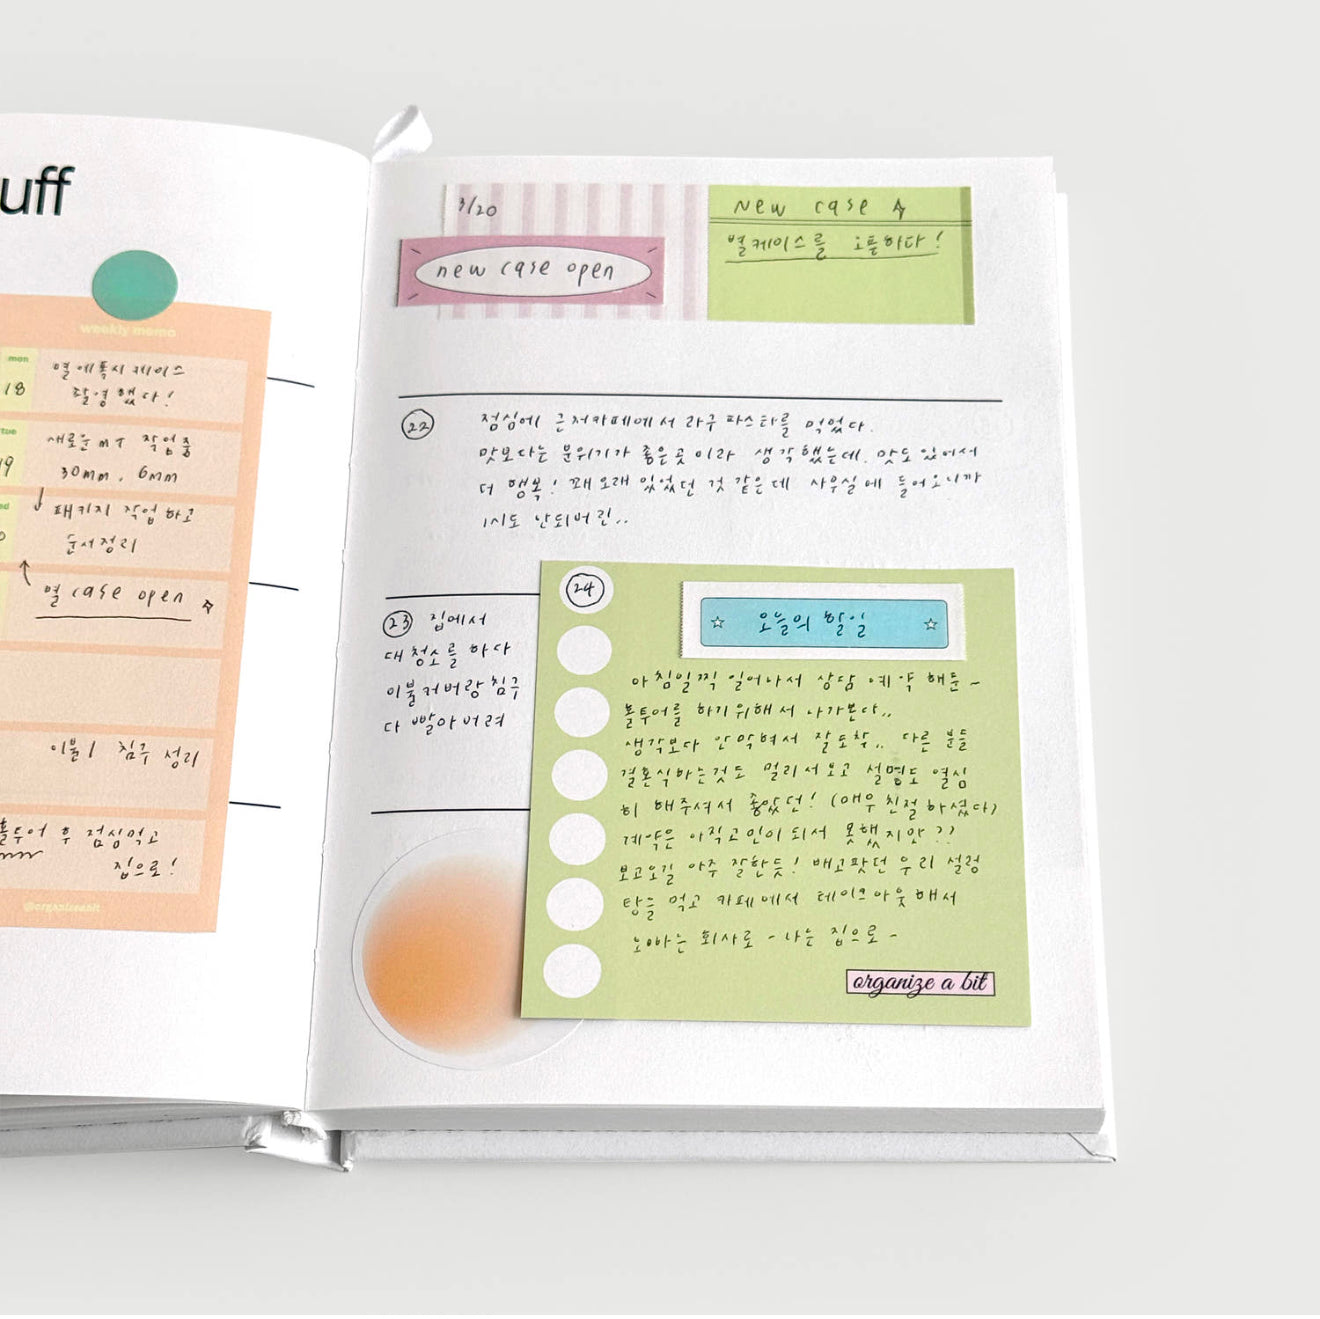 uff
weekly memo
mon
18
별 에폭시 케이스
촬영했다!
tue
19
새로운 MT 작업중
30mm, 6mm
패키지 작업하고
순서정리
별 case open
이불 / 침구 정리
홀투어 후 점심먹고
집으로!
@organizeabit
3/20
new case open
New case
별케이스를 오픈하다!
22
점심에 근처카페에서 라구 파스타를 먹었다.
맛보다는 분위기가 좋은곳이라 생각했는데. 맛도 있어서
더 행복! 꽤 오래 있었던 것 같은데 사무실에 들어오니까
1시도 안되버린..
23 집에서
대청소를 하다
이불커버랑 침구
다 빨아버려
24
오늘의 할일
아침일찍 일어나서 상담 예약 해둔~
홀투어를 하기위해서 나가본다..
생각보다 안막혀서 잘도착.. 다른 분들
결혼식하는것도 멀리서보고 설명도 열심
히 해주셔서 좋았던! (매우 친절하셨다)
계약은 아직고민이 되서 못했지만??
보고오길 아주 잘한듯! 배고팠던 우리 설렁
탕을 먹고 카페에서 테이크아웃해서
오빠는 회사로 - 나는 집으로 -
organize a bit